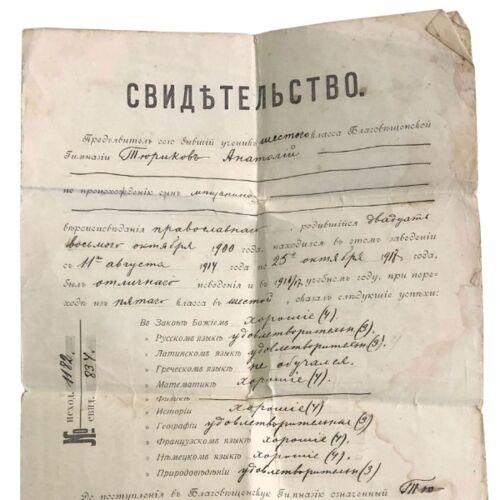 СВИДѢТЕЛЬСТВО.
Предъявитель сего бывшій ученикъ шестого класса Благовѣщенской
Гимназіи Тюриковъ Анатолій
по происхожденію сынъ мѣщанина
вѣроисповѣданія православнаго, родившійся двадцать
восьмого октября 1900 года, находился въ этомъ заведеніи
съ 11го августа 1914 года по 25е октября 1917 года,
былъ отличнаго поведенія и въ 1916/17 учебномъ году, при пере-
ходѣ изъ пятаго класса въ шестой, оказалъ слѣдующіе успѣхи:
Въ Законѣ Божіемъ хорошіе (4)
» Русскомъ языкѣ удовлетворительн (3)
» Латинскомъ языкѣ удовлетворительн (3).
» Греческомъ языкѣ не обучался.
» Математикѣ хорошіе (4).
» Физикѣ
» Исторіи хорошіе (4)
» Географіи удовлетворительныя (3)
» Французскомъ языкѣ хорошіе (4).
» Нѣмецкомъ языкѣ хорошіе (4).
» Природовѣдѣніи удовлетворительн (3)
До поступленія въ Благовѣщенскую Гимназію означенный Тю-
№ исход. 1182.
свит. 834.